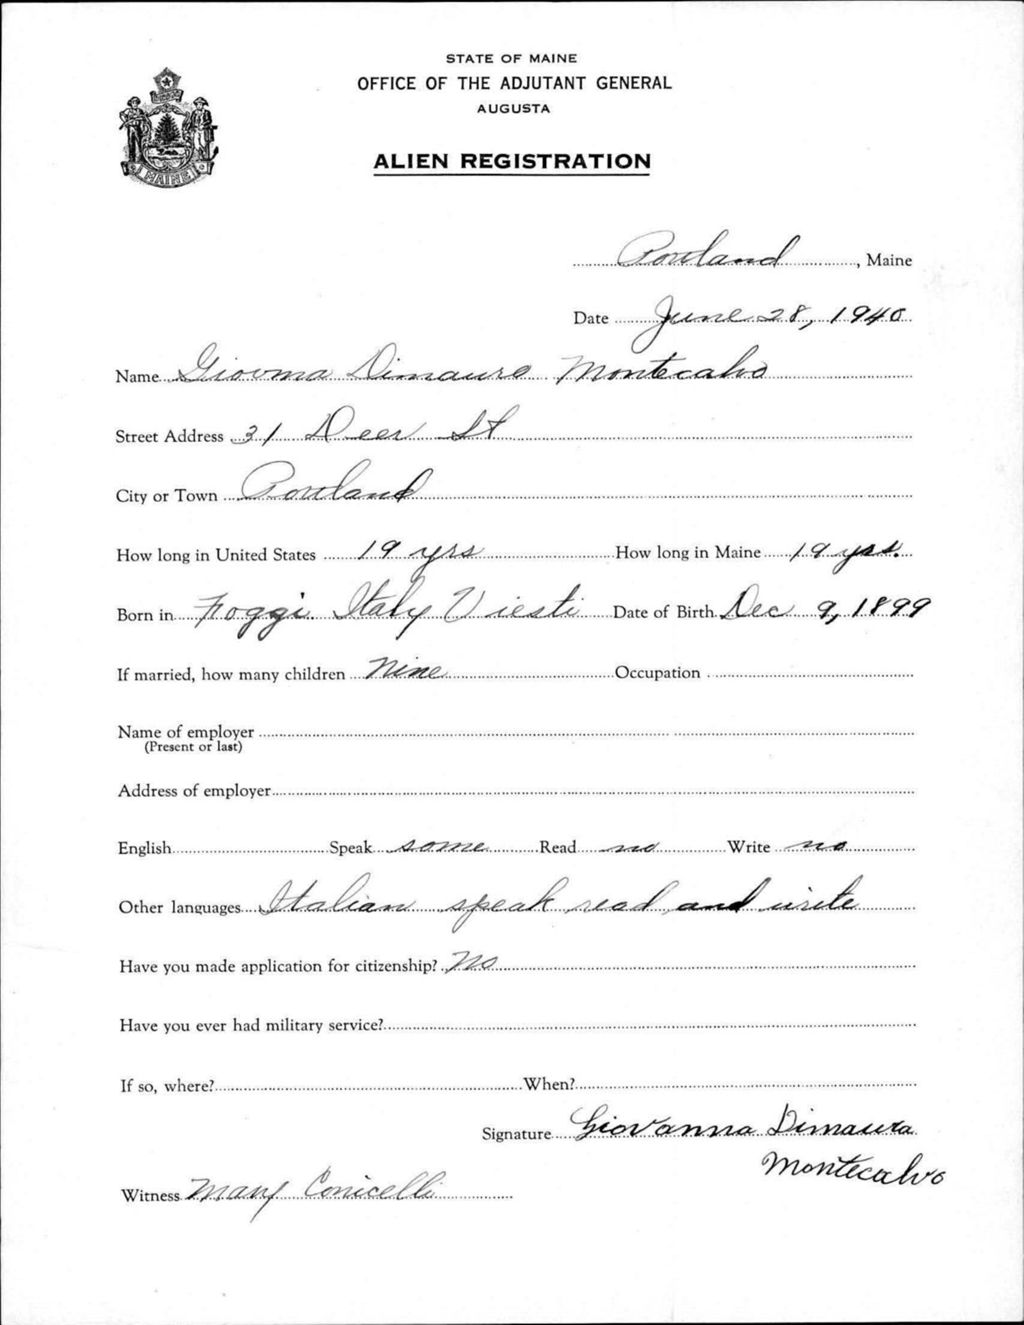 STATE OF MAINE
OFFICE OF THE ADJUTANT GENERAL
AUGUSTA
MAINE
ALIEN REGISTRATION
Portland, Maine
Date June 28, 1940
Name Giovma Dimauro Montecalvo
Street Address 31 Deer St
City or Town Portland
How long in United States 19 yrs How long in Maine 19 yrs.
Born in Foggi. Italy Viesti Date of Birth Dec 9, 1899
If married, how many children Nine Occupation
Name of employer
(Present or last)
Address of employer
English Speak some Read no Write no
Other languages Italian speak read and write
Have you made application for citizenship? No
Have you ever had military service?
If so, where? When?
Signature Giovanna Dimaura
Montecalvo
Witness Mary Conicelli